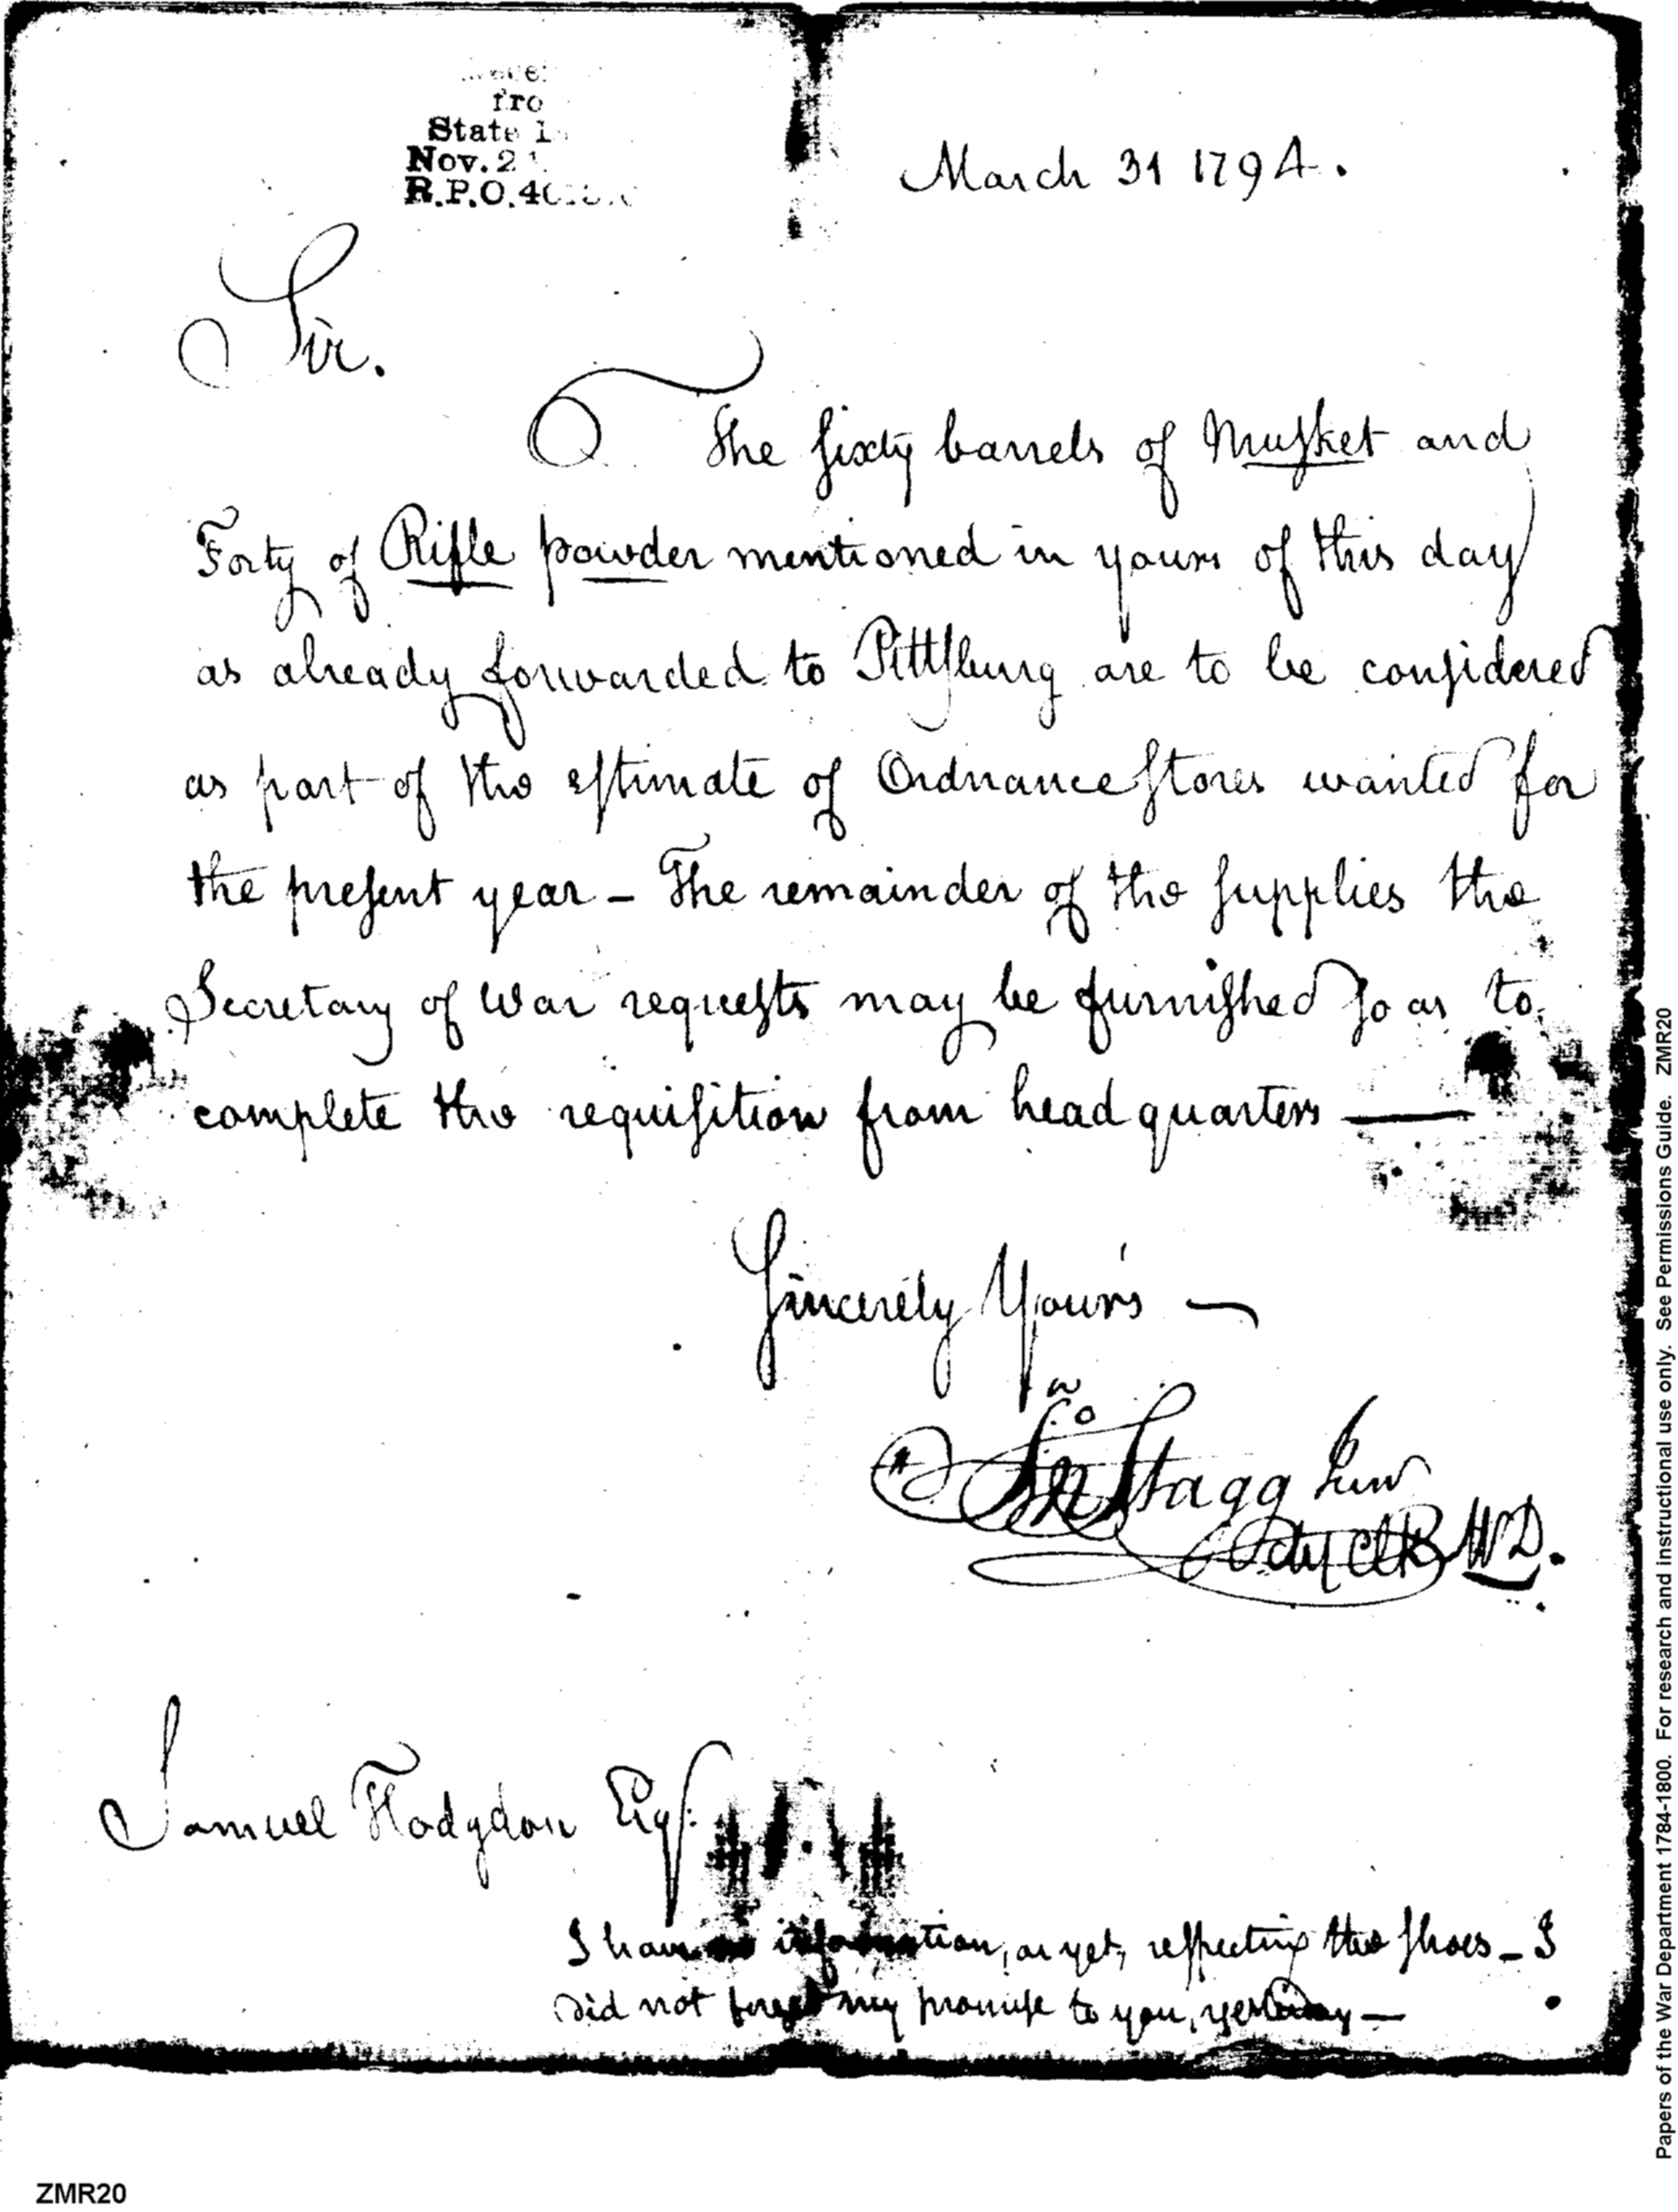 fro
State
Nov. 2
R.P.O. 4
March 31 1794.
Sir.
The sixty barrels of Musket and
Forty of Rifle powder mentioned in yours of this day
as already forwarded to Pittsburg are to be considered
as part of the estimate of Ordnance stores wanted for
the present year – The remainder of the supplies the
Secretary of War requests may be furnished so as to
complete the requisition from head quarters —
Sincerely Yours —
Jno Stagg Junr
Clk WD.
Samuel Hodgdon Esqr:
I have no information, as yet, respecting the shoes – I
did not forget my promise to you, yesterday —
Papers of the War Department 1784-1800. For research and instructional use only. See Permissions Guide. ZMR20
ZMR20